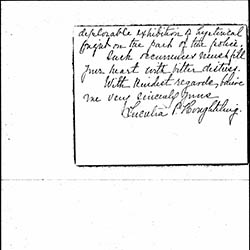 deplorable exhibition of hysterical
fright on the part of the police.
Such occurrences must fill
your heart with bitter distress.
With kindest regards, believe
me very sincerely yours
Lucretia P. Houghteling.